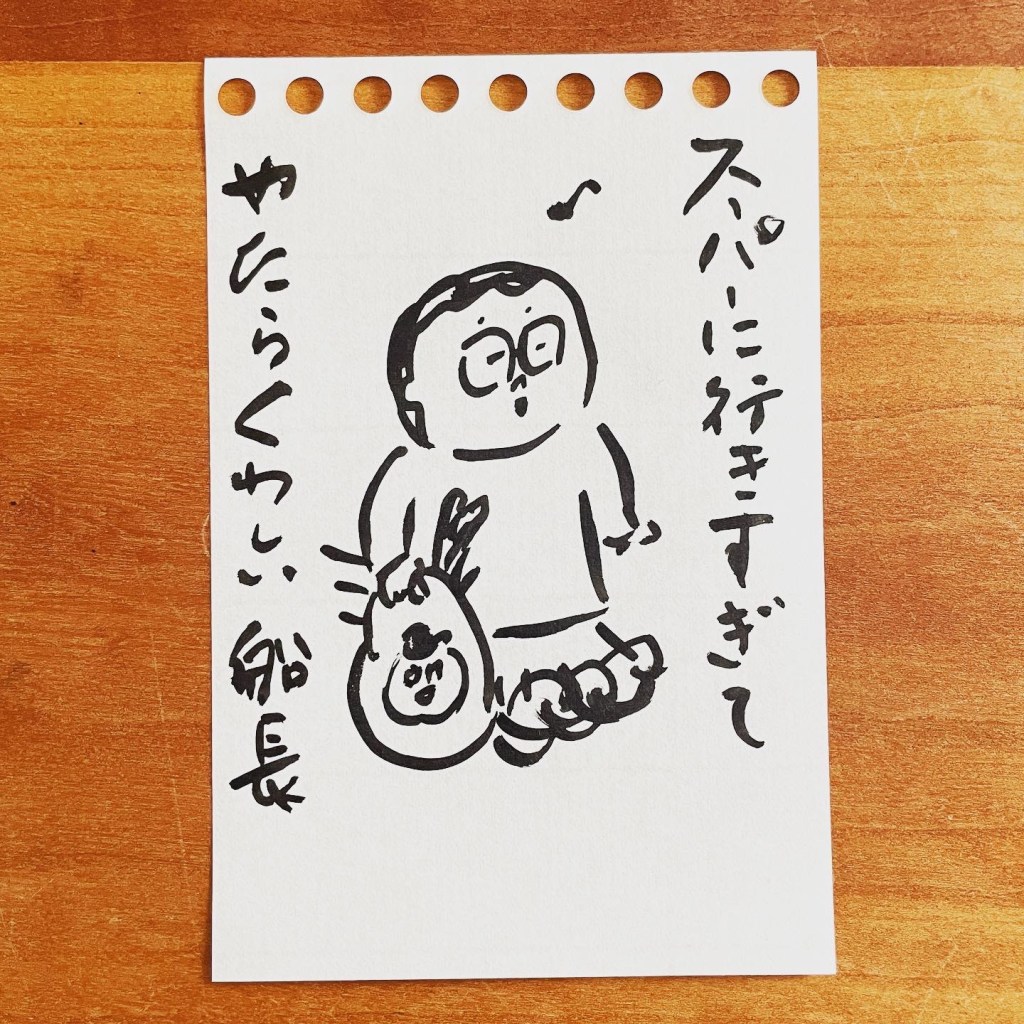 スーパーに行きすぎて
やたらくわしい船長